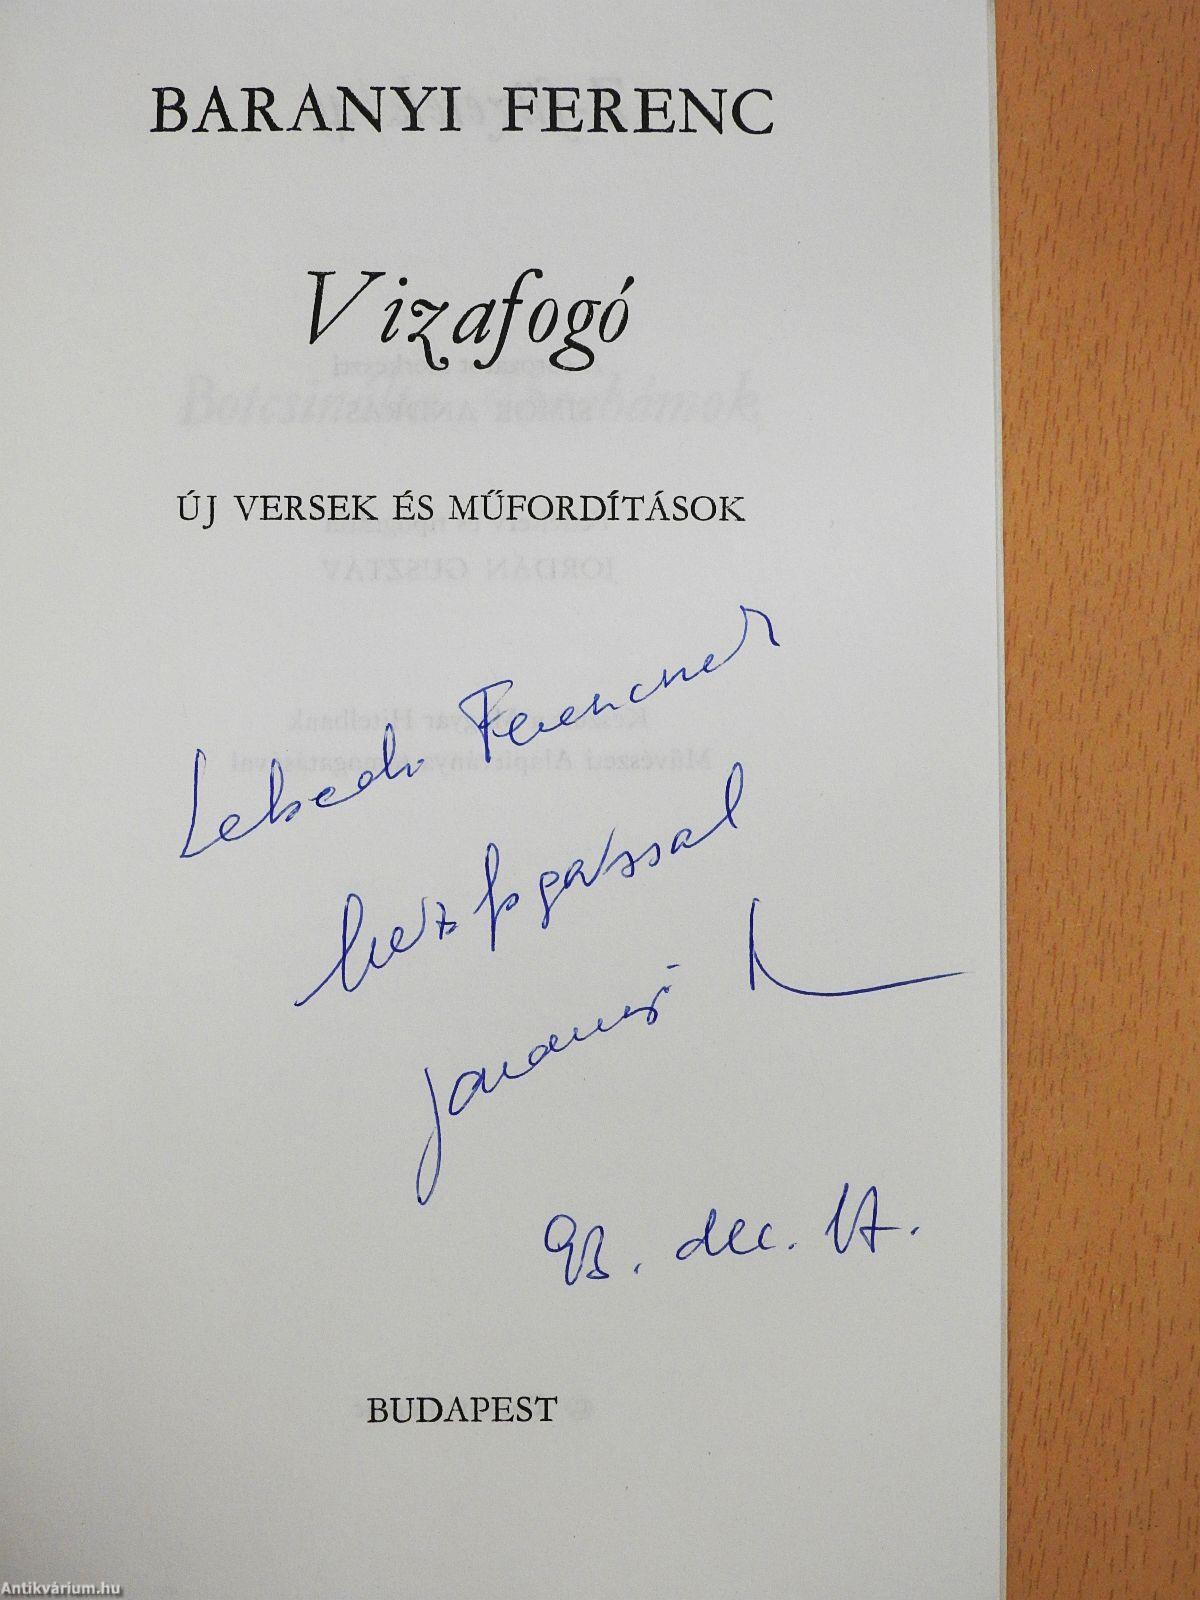 BARANYI FERENC
Vizafogó
ÚJ VERSEK ÉS MŰFORDÍTÁSOK
Ferencnek
kézfogással
Baranyi F
93. dec. 17.
BUDAPEST
Antikvárium.hu